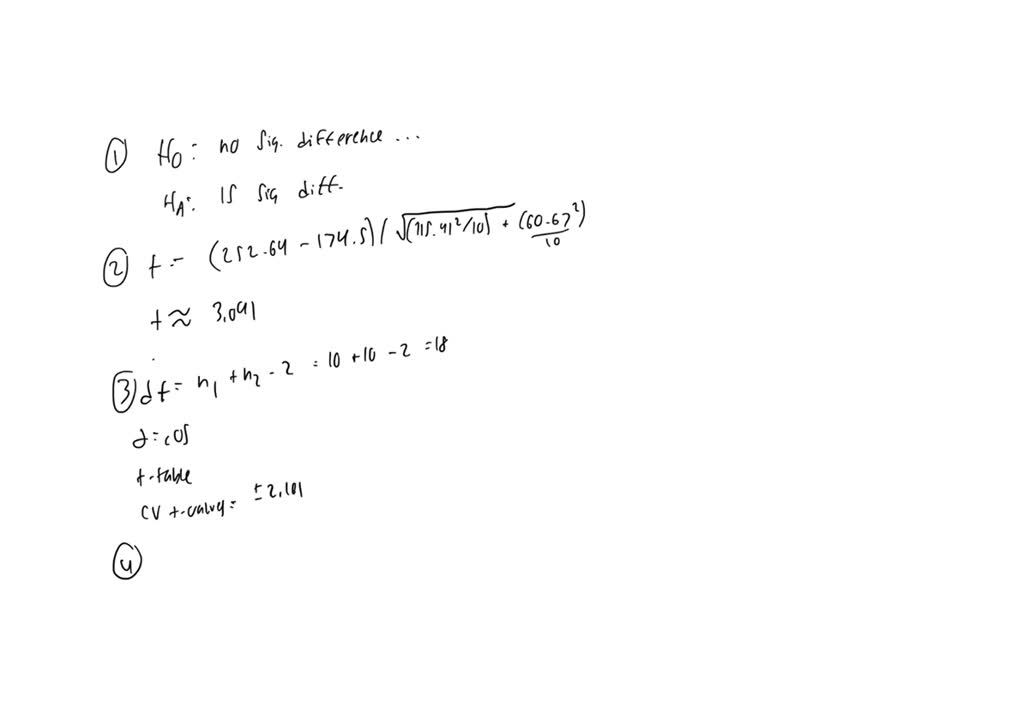 ① H₀: no sig. difference ...
H_A: is sig diff.
② t = (252.64 - 174.5) / √(115.41²/10) + (60.67²)/10
t ≈ 3.091
③ df = n₁ + n₂ - 2 = 10 + 10 - 2 = 18
α = .05
t-table
CV t-value = ± 2.101
④